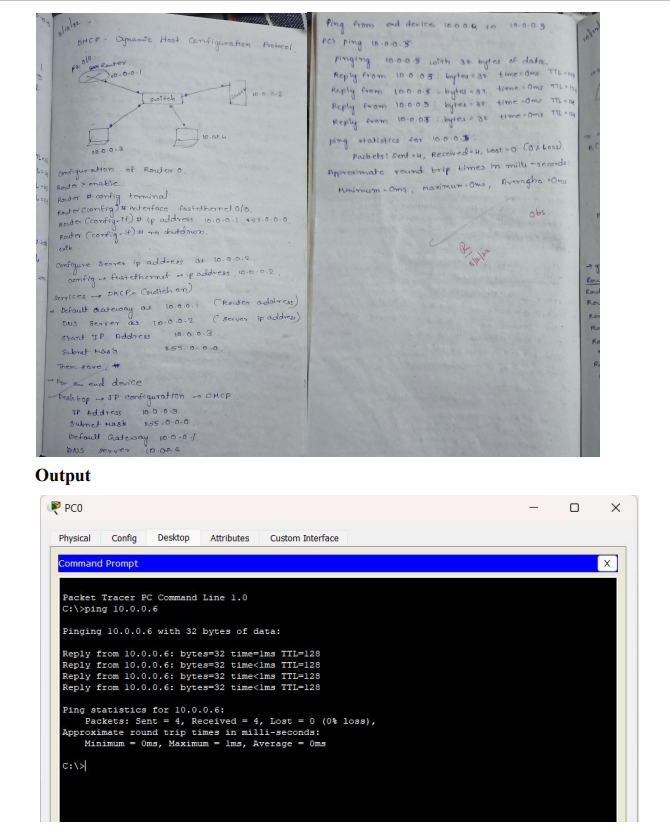 DHCP - Dynamic Host Configuration Protocol
Router
10.0.0.1
switch
10.0.0.2
10.0.0.3
Configuration of Router 0
Router > enable
Router # config terminal
Router (config) # interface fastethernet 0/0
Router (config-if) # ip address 10.0.0.1 255.0.0.0
Router (config-if) # no shutdown
exit
Configure Server ip address as 10.0.0.2
config → fastethernet → ip address, 10.0.0.2
Services → DHCP (switch on)
Default Gateway as 10.0.0.1 (Router address)
DNS Server as 10.0.0.2 (server ip address)
Start IP Address 10.0.0.3
Subnet Mask 255.0.0.0
Then save
end device
Desktop → IP configuration → DHCP
IP Address 10.0.0.3
Subnet Mask 255.0.0.0
Default Gateway 10.0.0.1
DNS server
Ping from end device
ping 10.0.0.3
Pinging 10.0.0.3 with 32 bytes of data
Reply from 10.0.0.3: bytes=32 time=0ms
Reply from 10.0.0.3: bytes=32 time=0ms
Reply from 10.0.0.3: bytes=32 time=0ms
Reply from 10.0.0.3: bytes=32 time=0ms
ping statistics for 10.0.0.3
Packets: Sent=4, Received=4, Lost=0 (0% Loss)
Approximate round trip times in milli-seconds:
Minimum=0ms, Maximum=0ms,
Output
PC0
Physical Config Desktop Attributes Custom Interface
Command Prompt
X
Packet Tracer PC Command Line 1.0
C:\>ping 10.0.0.6
Pinging 10.0.0.6 with 32 bytes of data:
Reply from 10.0.0.6: bytes=32 time=1ms TTL=128
Reply from 10.0.0.6: bytes=32 time<1ms TTL=128
Reply from 10.0.0.6: bytes=32 time<1ms TTL=128
Reply from 10.0.0.6: bytes=32 time<1ms TTL=128
Ping statistics for 10.0.0.6:
Packets: Sent = 4, Received = 4, Lost = 0 (0% loss),
Approximate round trip times in milli-seconds:
Minimum = 0ms, Maximum = 1ms, Average = 0ms
C:\>